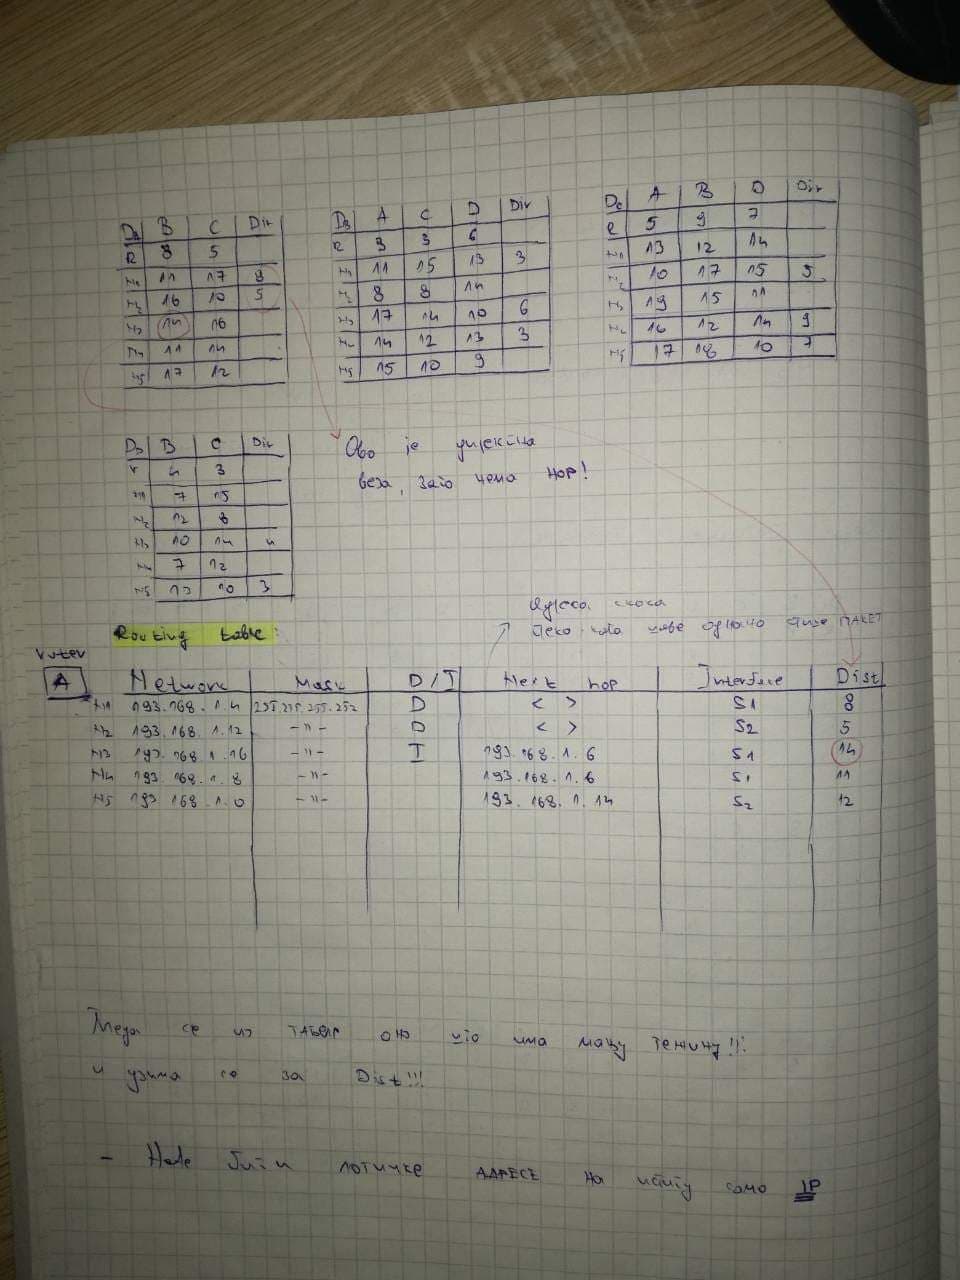 DA B C Dir
R 8 5
N1 11 17 8
N2 16 10 5
N3 14 16
N4 11 14
N5 17 12
DB A C D Dir
R 3 3 6
N1 11 15 13 3
N2 8 8 14
N3 17 14 10 6
N4 14 12 13 3
N5 15 10 9
DC A B D Dir
R 5 9 7
N1 13 12 14
N2 10 17 15 5
N3 19 15 11
N4 16 12 14 9
N5 17 18 10 7
DD B C Dir
r 4 3
N1 7 15
N2 12 8
N3 10 14 4
N4 7 12
N5 10 3
Ово је директна
веза, зато нема HOP!
Адреса скока
ПАКЕТ
Routing table:
ruter
A Network Mask D/I Next hop Interface Dist
N1 193.168.1.4 255.255.255.252 D < > S1 8
N2 193.168.1.12 -"- D < > S2 5
N3 193.168.1.16 -"- I 193.168.1.6 S1 14
N4 193.168.1.8 -"- 193.168.1.6 S1 11
N5 193.168.1.0 -"- 193.168.1.14 S2 12
се из ТАБЕЛЕ оно што има мању тежину!!!
и узима се за Dist!!!
- Неће бити логичке АДРЕСЕ на испиту само IP